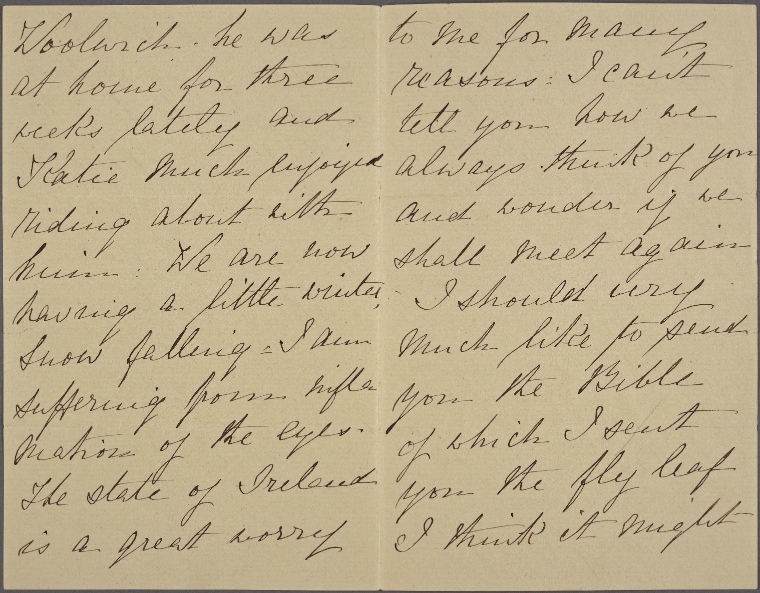 Woolwich. he was
at home for three
weeks lately and
Katie much enjoyed
riding about with
him: We are now
having a little winter,
Snow falling - I am
suffering from infla
mation of the eyes.
The state of Ireland
is a great worry
to me for many
reasons: I can't
tell you how we
always think of you
and wonder if we
shall meet again
- I should very
much like to send
you the Bible
of which I sent
you the fly leaf
I think it might